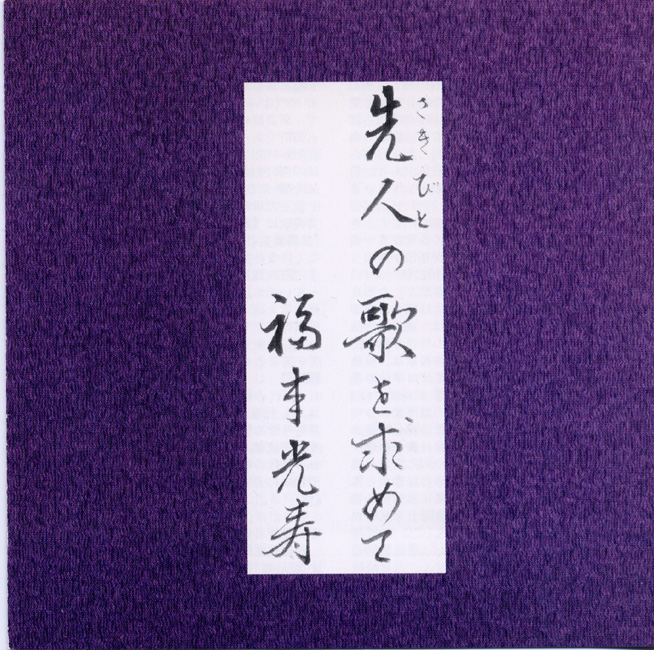 さきびと
先人の歌を求めて
福本光寿